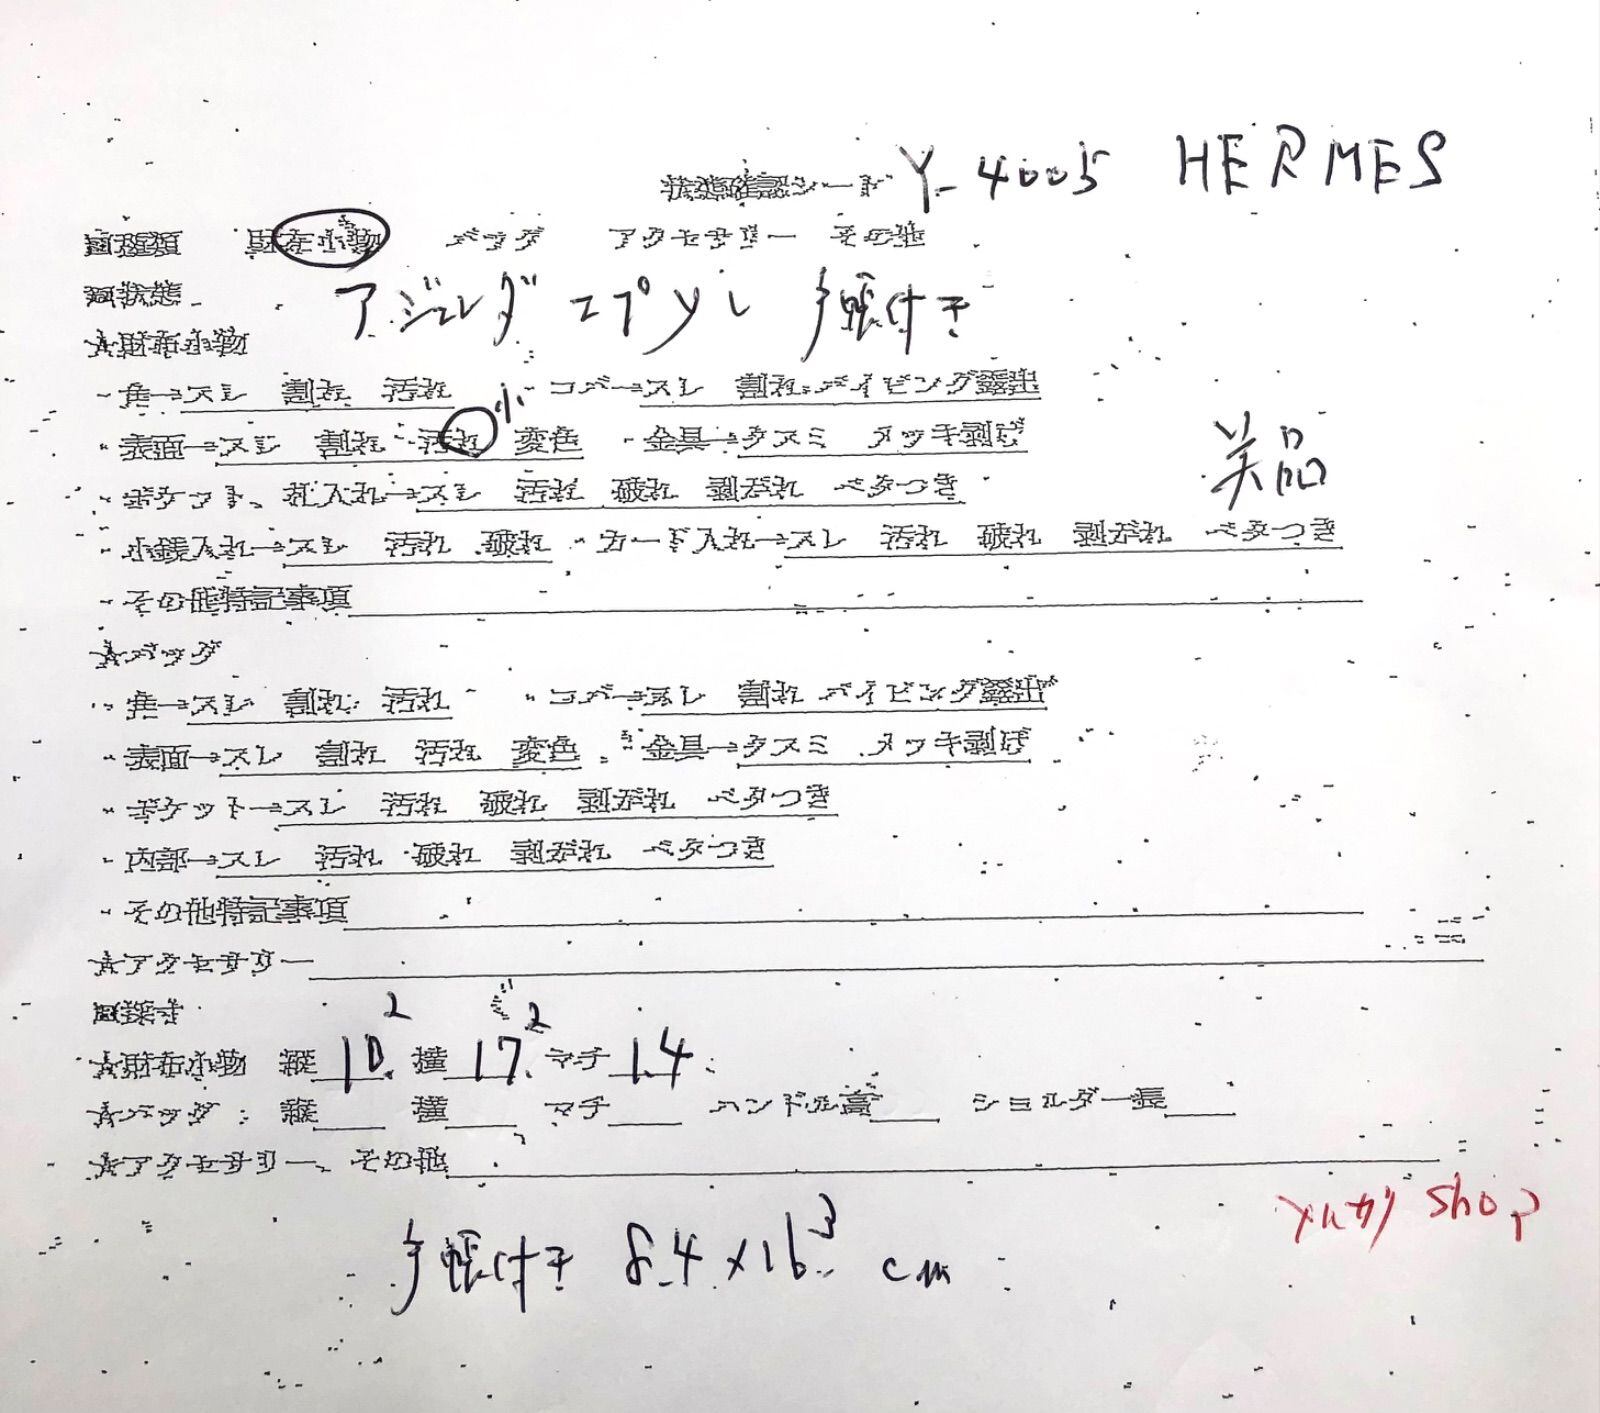 状態確認シート Y-4005 HERMES
□種類 財布小物 バッグ アクセサリー その他
□状態
アジェンダ エプソン 手帳付き
☆財布小物
・角→スレ 割れ 汚れ ・コバ→スレ 割れ パイピング露出
小
・表面→スレ 割れ 汚れ 変色 ・金具→クスミ メッキ剥げ
美品
・ポケット、札入れ→スレ 汚れ 破れ 剥がれ ベタつき
・小銭入れ→スレ 汚れ 破れ ・カード入れ→スレ 汚れ 破れ 剥がれ ベタつき
・その他特記事項
☆バッグ
・角→スレ 割れ 汚れ ・コバ→スレ 割れ パイピング露出
・表面→スレ 割れ 汚れ 変色 ・金具→クスミ メッキ剥げ
・ポケット→スレ 汚れ 破れ 剥がれ ベタつき
・内部→スレ 汚れ 破れ 剥がれ ベタつき
・その他特記事項
☆アクセサリー
□採寸
☆財布小物 縦 10.2 横 17.2 マチ 1.4
☆バッグ 縦 横 マチ ハンドル高 ショルダー長
☆アクセサリー、その他
メルカリ Shop
手帳付き 8.4×16.3 cm